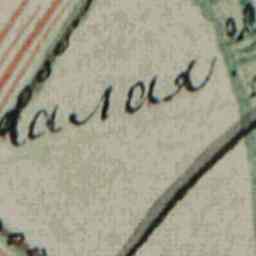 алах